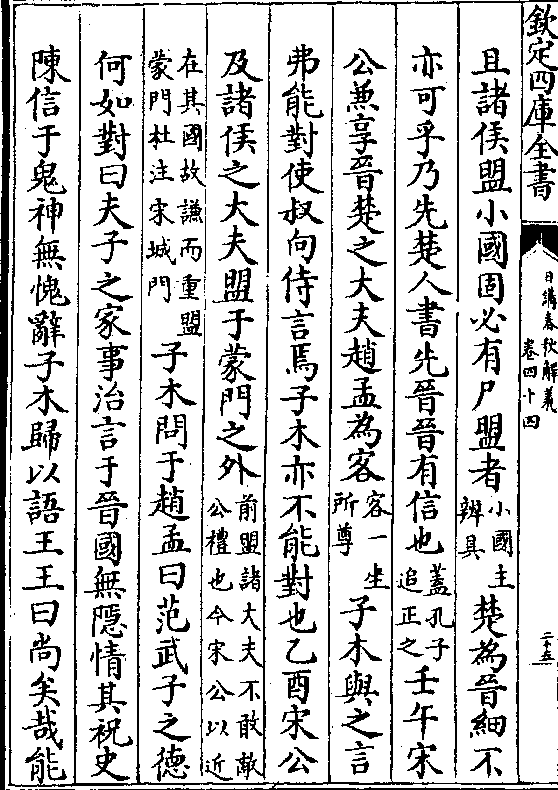 欽定四庫全書
日講春秋解義
卷四十四
二十五
且諸侯盟小國固必有尸盟者小國主辨具楚為晉細不
亦可乎乃先楚人書先晉晉有信也蓋孔子追正之壬午宋
公兼享晉楚之大夫趙孟為客客一坐所尊子木與之言
弗能對使叔向侍言焉子木亦不能對也乙酉宋公
及諸侯之大夫盟于蒙門之外前盟諸大夫不敢敵公禮也今宋公以近
在其國故謙而重盟蒙門杜注宋城門子木問于趙孟曰范武子之德
何如對曰夫子之家事治言于晉國無隱情其祝史
陳信于鬼神無愧辭子木歸以語王王曰尚矣哉能